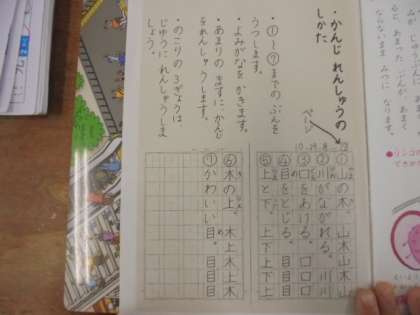 ・かんじ れんしゅうの
しかた
・①~⑦までの ぶんを
うつします。
・よみがなを かきます。
・あまりの ますに かんじ
をれんしゅうします。
・のこりの 3ぎょうは
じゆうに れんしゅうしま
しょう。
ページ
①山の木。山木山木
②川がながれる。川川
③口をあける。口口口
④目をとじる。目目目
⑤上と下。上下上下
⑥木の上。木上木上木
⑦かわいい目。目目目